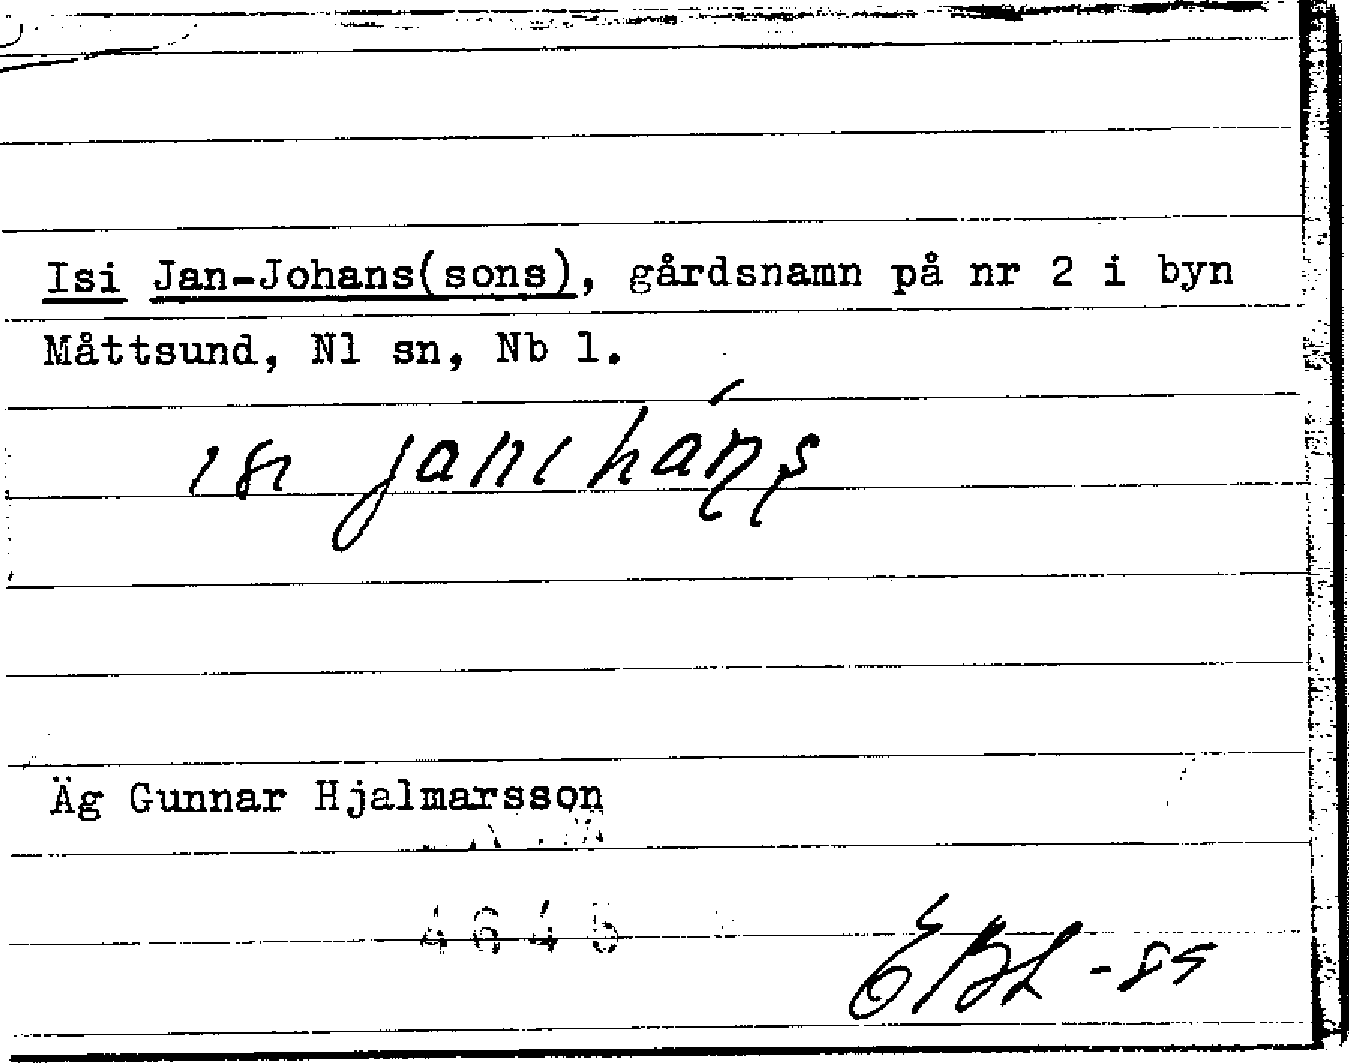 Isi Jan-Johans(sons), gårdsnamn på nr 2 i byn
Måttsund, Nl sn, Nb l.
Äg Gunnar Hjalmarsson
4645
EBL-85